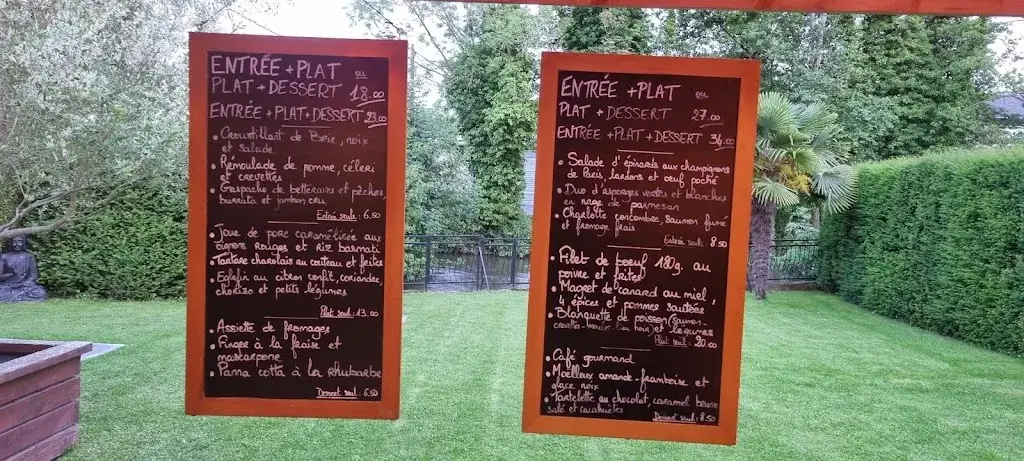 ENTRÉE + PLAT ou
PLAT + DESSERT 18.00
ENTRÉE + PLAT + DESSERT 23.00
• Croustillant de Brie, noix
et salade
• Rémoulade de pomme, céleri
et crevettes
• Gaspacho de betteraves et pêches
burrata et jambon cru
Entrée seule : 6.50
• Joue de porc caramélisée aux
oignons rouges et riz basmati
• Tartare charolais au couteau et frites
• Eglefin au citron confit, coriandre,
chorizo et petits légumes
Plat seul : 13.00
• Assiette de fromages
• Finger à la fraise et
mascarpone
• Panna cotta à la Rhubarbe
Dessert seul : 6.50
ENTRÉE + PLAT ou
PLAT + DESSERT 27.00
ENTRÉE + PLAT + DESSERT 34.00
• Salade d'épinards aux champignons
de Paris, lardons et oeuf poché
• Duo d'asperges vertes et blanches
en nage de parmesan
• Charlotte concombre, saumon fumé
et fromage frais
Entrée seule : 8.50
• Filet de boeuf 180g. au
poivre et frites
• Magret de canard au miel,
4 épices et pommes sautées
• Blanquette de poisson (saumon-
crevettes- lieu noir) et légumes
Plat seul : 20.00
• Café gourmand
• Moelleux amande-framboise et
glace noix
• Tartelette au chocolat, caramel beurre
salé et cacahuètes
Dessert seul : 8.50